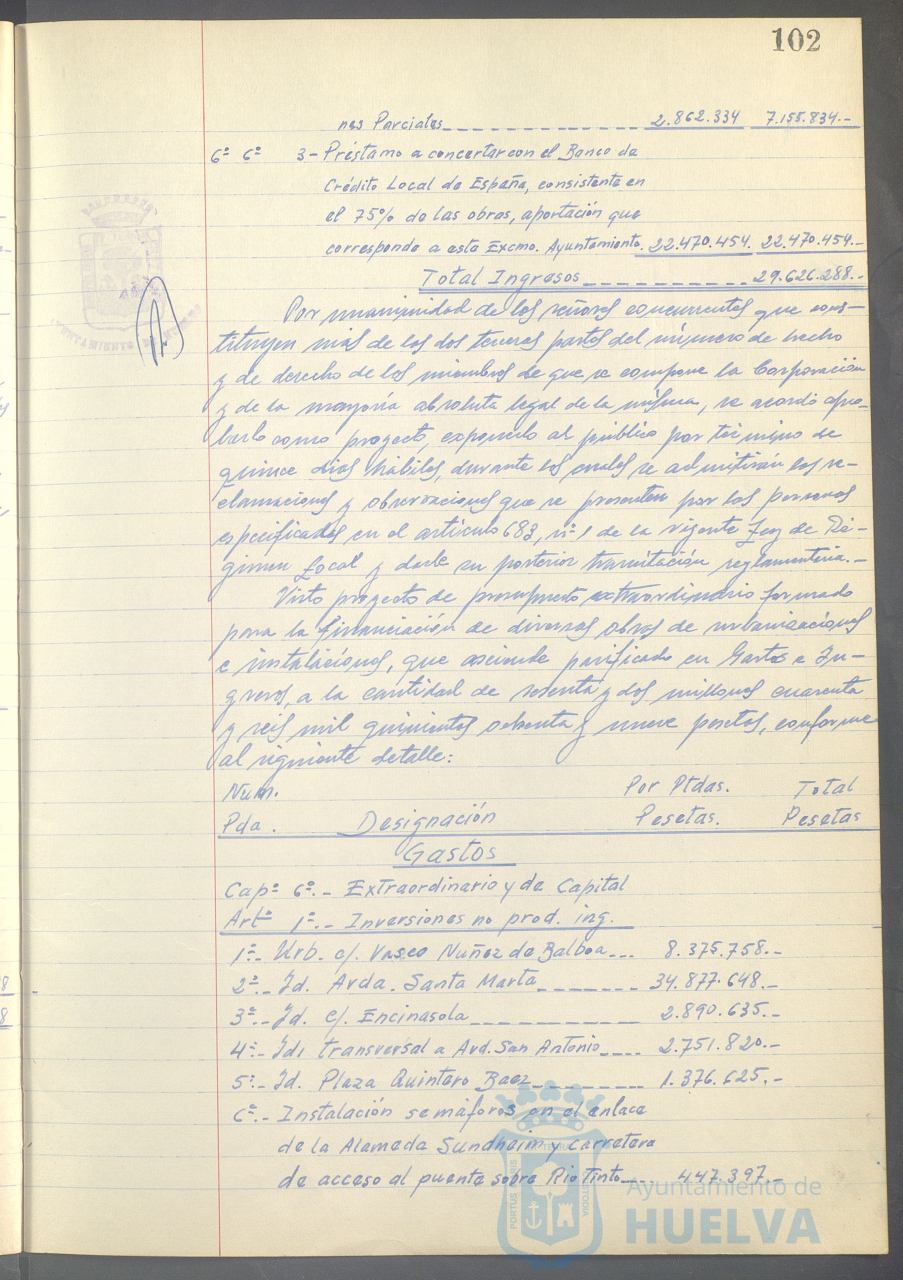 102
nes Parciales 2.862.334 7.155.834.-
6º 6º 3- Préstamo a concertar con el Banco de
Crédito Local de España, consistente en
el 75% de las obras, aportación que
corresponde a este Excmo. Ayuntamiento. 22.470.454. 22.470.454.-
Total Ingresos 29.626.288.-
Por unanimidad de los señores concurrentes que cons-
tituyen más de los dos terceras partes del número de hecho
y de derecho de los miembros de que se compone la Corporación
y de la mayoría absoluta legal de la misma, se acordó apro-
barlo como proyecto, exponerlo al público por término de
quince días hábiles, durante los cuales se admitirán los re-
clamaciones y observaciones que se presenten por las personas
especificadas en el artículo 683, nº 1 de la vigente Ley de Ré-
gimen Local y darle su posterior tramitación reglamentaria.-
Visto proyecto de presupuesto extraordinario formado
para la financiación de diversas obras de urbanizaciones
e instalaciones, que asciende parificado en Gastos e In-
gresos, a la cantidad de sesenta y dos millones cuarenta
y seis mil quinientas ochenta y nueve pesetas, conforme
al siguiente detalle:
Num. Por Ptdas. Total
Pda. Designación Pesetas. Pesetas
Gastos
Capº 6º.- Extraordinario y de Capital
Artº 1º.- Inversiones no prod. ing.
1º- Urb. c/. Vasco Nuñez de Balboa 8.375.758.-
2º.- Id. Avda. Santa Marta 34.877.648.-
3º.- Id. c/. Encinasola 2.890.635.-
4º.- Id. transversal a Avd. San Antonio 2.751.820.-
5º.- Id. Plaza Quintero Baez 1.376.625.-
6º.- Instalación semáforos en el enlace
de la Alameda Sundheim y carretera
de acceso al puente sobre Rio Tinto 447.397.-
Ayuntamiento de
HUELVA